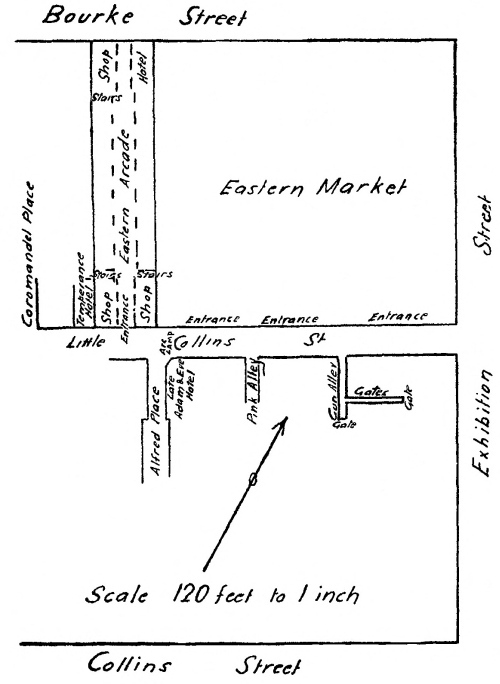 Bourke Street
Shop
Hotel
Stairs
Eastern Arcade
Eastern Market
Coromandel Place
Street
Temperance Hotel
Stairs
Stairs
Shop
Entrance
Shop
Entrance
Entrance
Entrance
Little Collins St
Arc Lamp
Alfred Place
Late Adam & Eve Hotel
Pink Alley
Gun Alley
Gates
Gate
Gate
Exhibition
Scale 120 feet to 1 inch
Collins Street